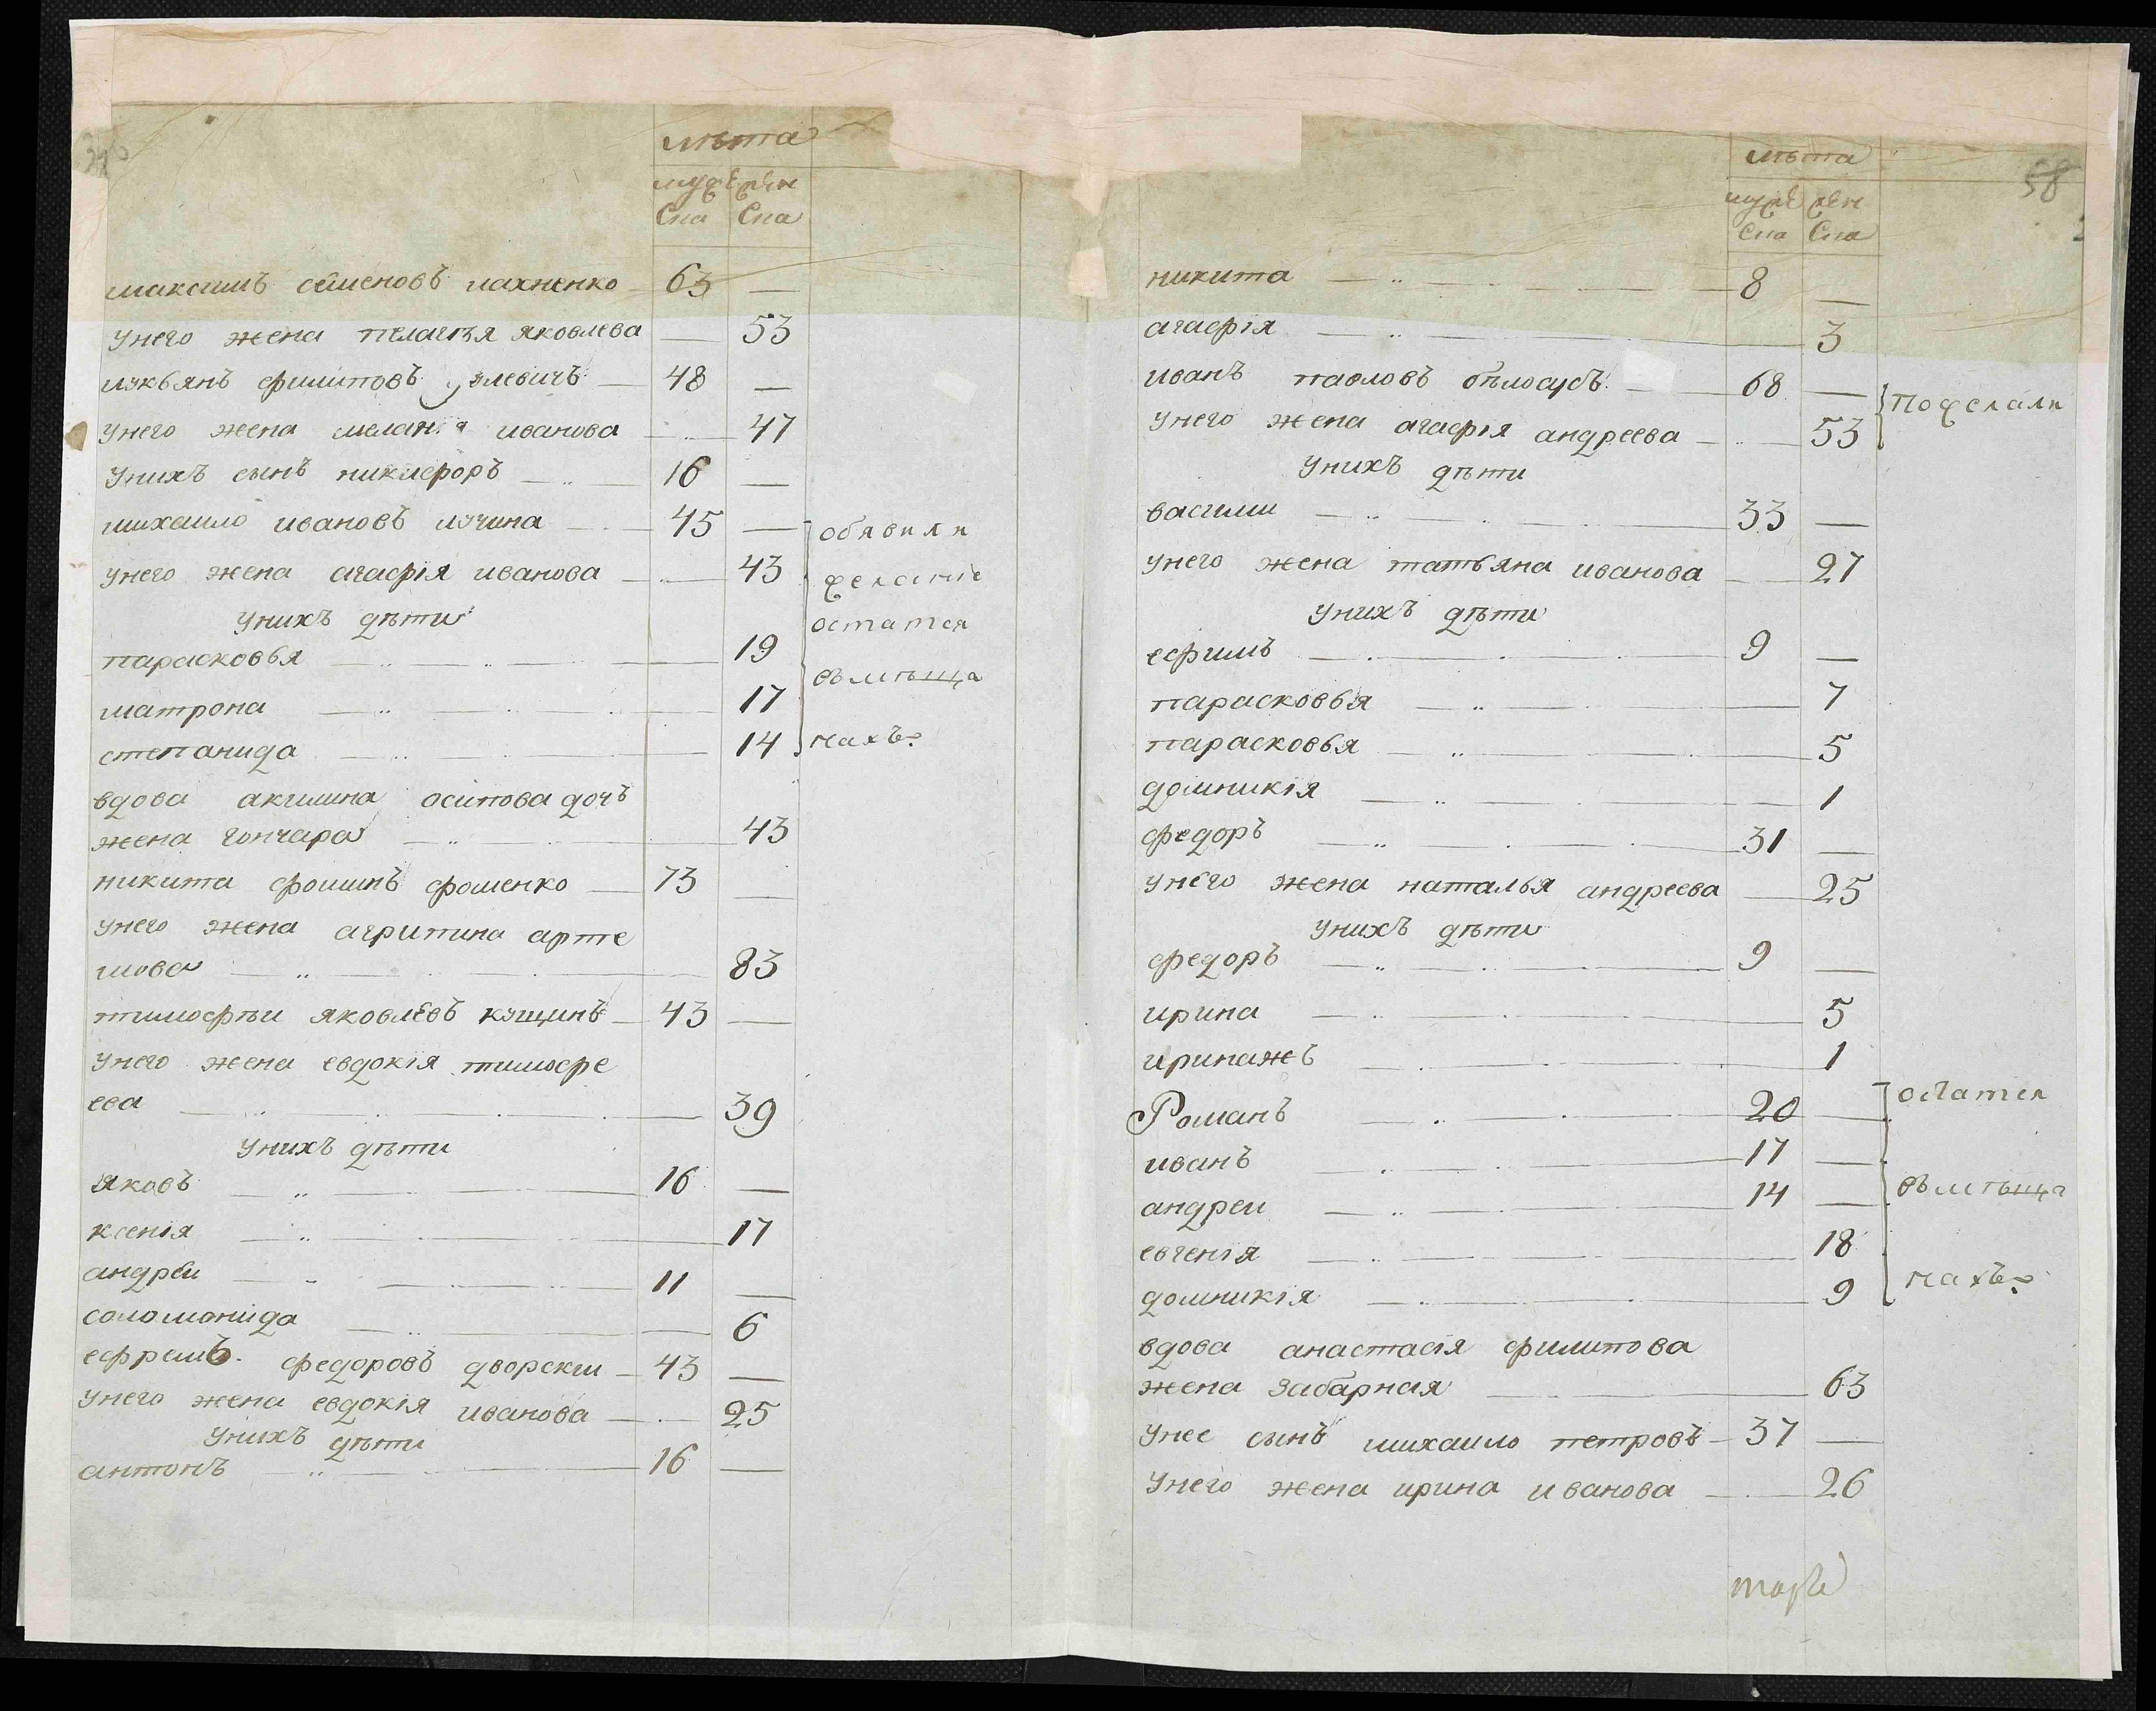 лѣта
муже жен
ска ска
максимъ семеновъ махненко 63 —
унего жена пелагея яковлева — 53
лукьянъ филиповъ левичъ — 48 —
унего жена мелания иванова — 47
унихъ сынъ никифоръ — 16 —
михаило ивановъ лучина — 45 —
обявили
унего жена агафія иванова — 43
желаніе
унихъ дѣти
остатся
парасковья — 19
въмѣща
матрона — 17
степанида — 14
нахъ
вдова акилина осипова дочъ
жена гончара — 43
никита фоминъ фоменко — 73 —
унего жена агрипина арте
мова — 83
тимофѣи яковлевъ кущинъ — 43 —
унего жена евдокія тимофе
ева — 39
унихъ дѣти
яковъ — 16 —
ксенія — 17
андреи — 11 —
соломонида — 6
ефремъ федоровъ дворскіи — 43 —
унего жена евдокія иванова — 25
унихъ дѣти
антонъ — 16 —
58
лѣта
муже жен
ска ска
никита — 8 —
агафія — 3
иванъ павловъ бѣлоусъ — 68 —
пожелали
унего жена агафія андреева — 53
унихъ дѣти
василии — 33 —
унего жена татьяна иванова — 27
унихъ дѣти
ефимъ — 9 —
парасковья — 7
парасковья — 5
домникія — 1
федоръ — 31 —
унего жена наталья андреева — 25
унихъ дѣти
федоръ — 9 —
ирина — 5
иринажъ — 1
остатся
Романъ — 20 —
иванъ — 17 —
въмѣща
андреи — 14 —
евгенія — 18
нахъ
домникія — 9
вдова анастасія филипова
жена забарная — 63
унее сынъ михаило петровъ — 37 —
унего жена ирина иванова — 26